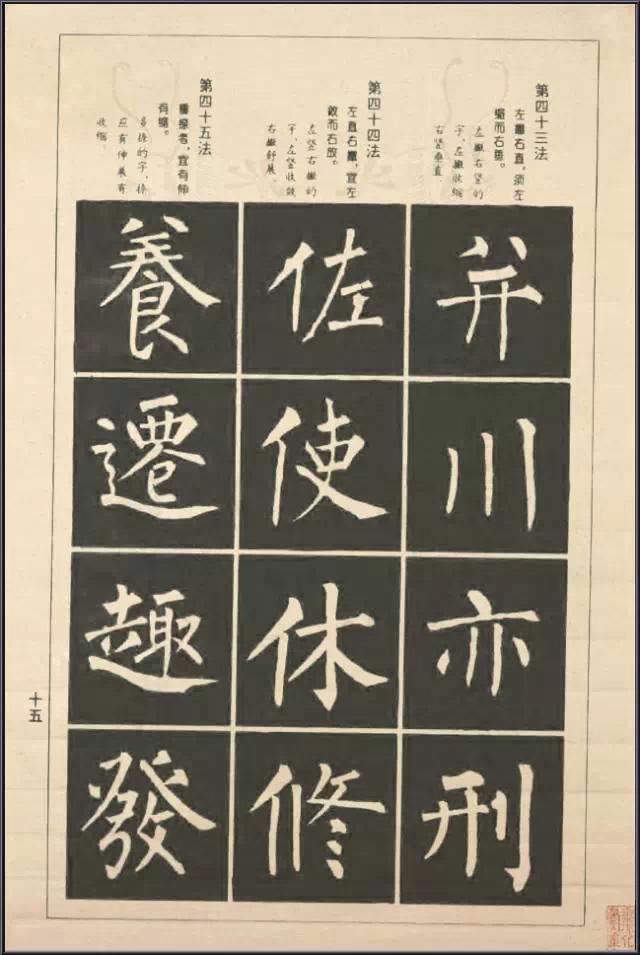 第四十三法
左撇右直，须左
缩而右垂。
左撇右竖的
字，左撇收缩
右竖垂直
并
川
亦
刑
第四十四法
左直右撇，宜左
敛而右放。
左竖右撇的
字，左竖收敛
右撇舒展
佐
使
休
修
第四十五法
有缩。
多捺的字，捺
应有伸展有
收缩
養
遷
趣
發
十五